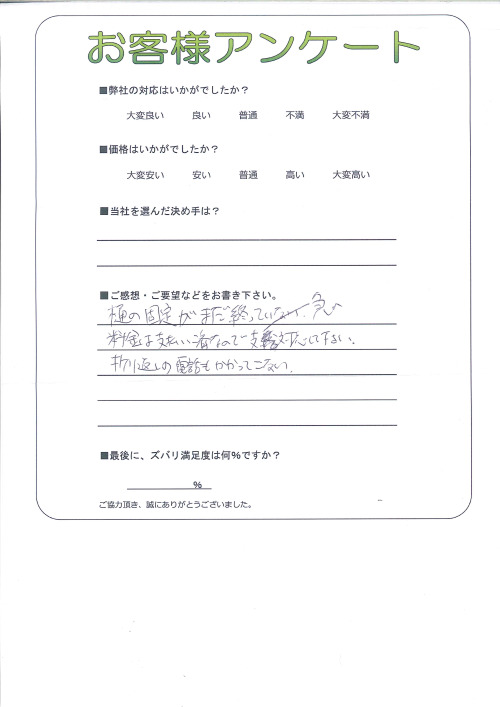 お客様アンケート
■弊社の対応はいかがでしたか？
大変良い 良い 普通 不満 大変不満
■価格はいかがでしたか？
大変安い 安い 普通 高い 大変高い
■当社を選んだ決め手は？
■ご感想・ご要望などをお書き下さい。
樋の固定がまだ終っていない
料金は支払い済なので 対応して下さい。
折り返しの電話もかかってこない。
■最後に、ズバリ満足度は何％ですか？
％
ご協力頂き、誠にありがとうございました。